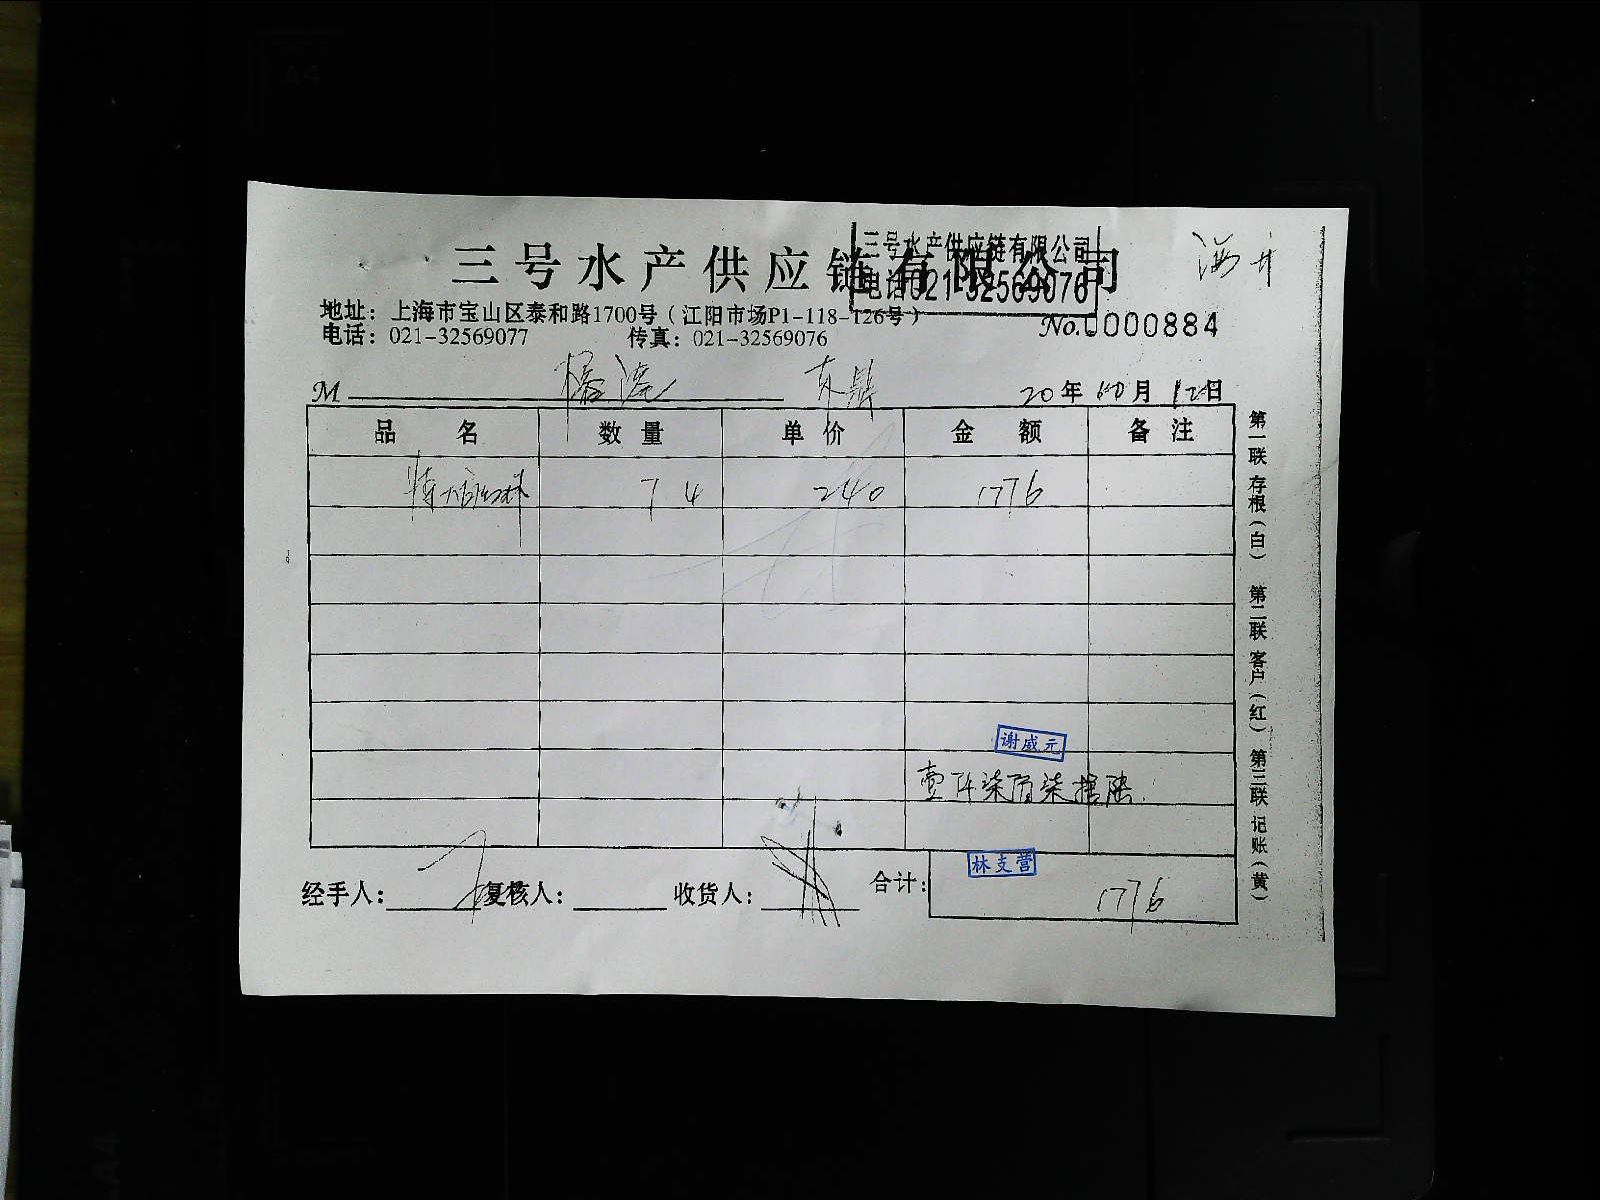 三号水产供应链有限公司
三号水产供应链有限公司
电话021-32569076
地址：上海市宝山区泰和路1700号（江阳市场P1-118-126号）
电话：021-32569077 传真：021-32569076
No.0000884
M 20年 10月 12日
品名 数量 单价 金额 备注
特大 74 240 1776
谢威元
壹仟柒佰柒拾陆
林支营
经手人： 复核人： 收货人： 合计： 1776
第一联 存根（白） 第二联 客户（红） 第三联 记账（黄）